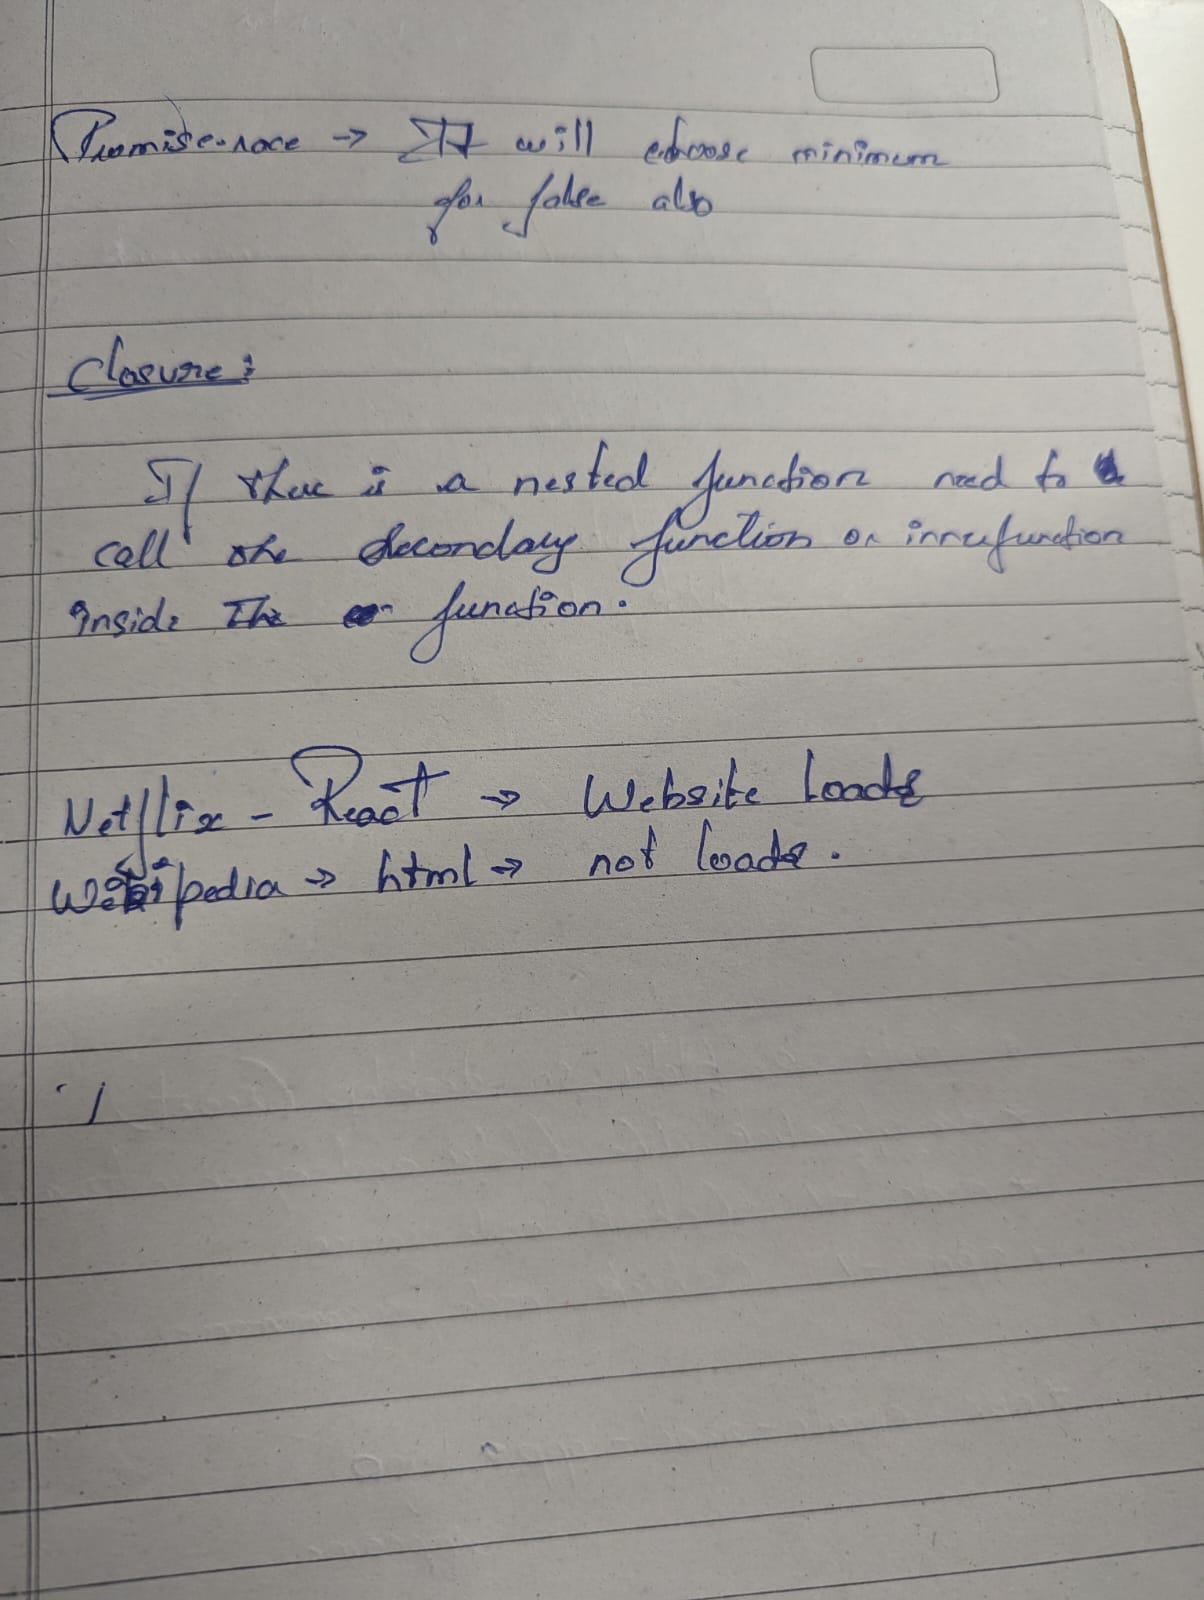 Promise.race → It will choose minimum
for false also
Closure:
If there is a nested function need to
call the secondary function or innerfunction
inside the function.
Netflix - React → Website loads
Wekipedia → html → not loads.